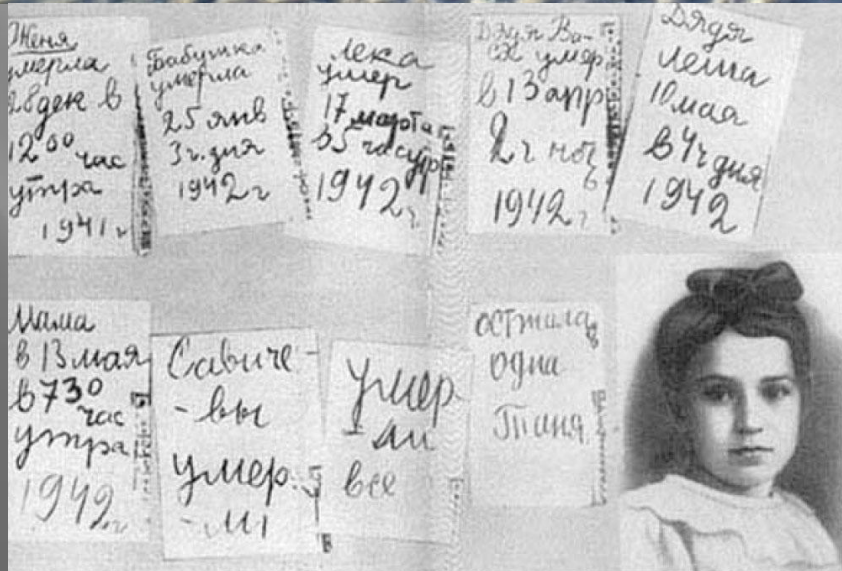 Женя
умерла
28 дек в
12 00 час
утра
1941 г
Бабушка
умерла
25 янв
3 ч. дня
1942 г
Лека
умер
17 марта
в 5 часутр
1942 г.
Дядя Ва-
ся умер
в 13 апр
2 ч ноч
ь
1942 г
Дядя
Леша
10 мая
в 4 ч дня
1942
Мама
в 13 мая
в 7 30
час
утра
1942 г
Савиче-
-вы
умер.
-ли
умер
-ли
все
осталась
одна
Таня